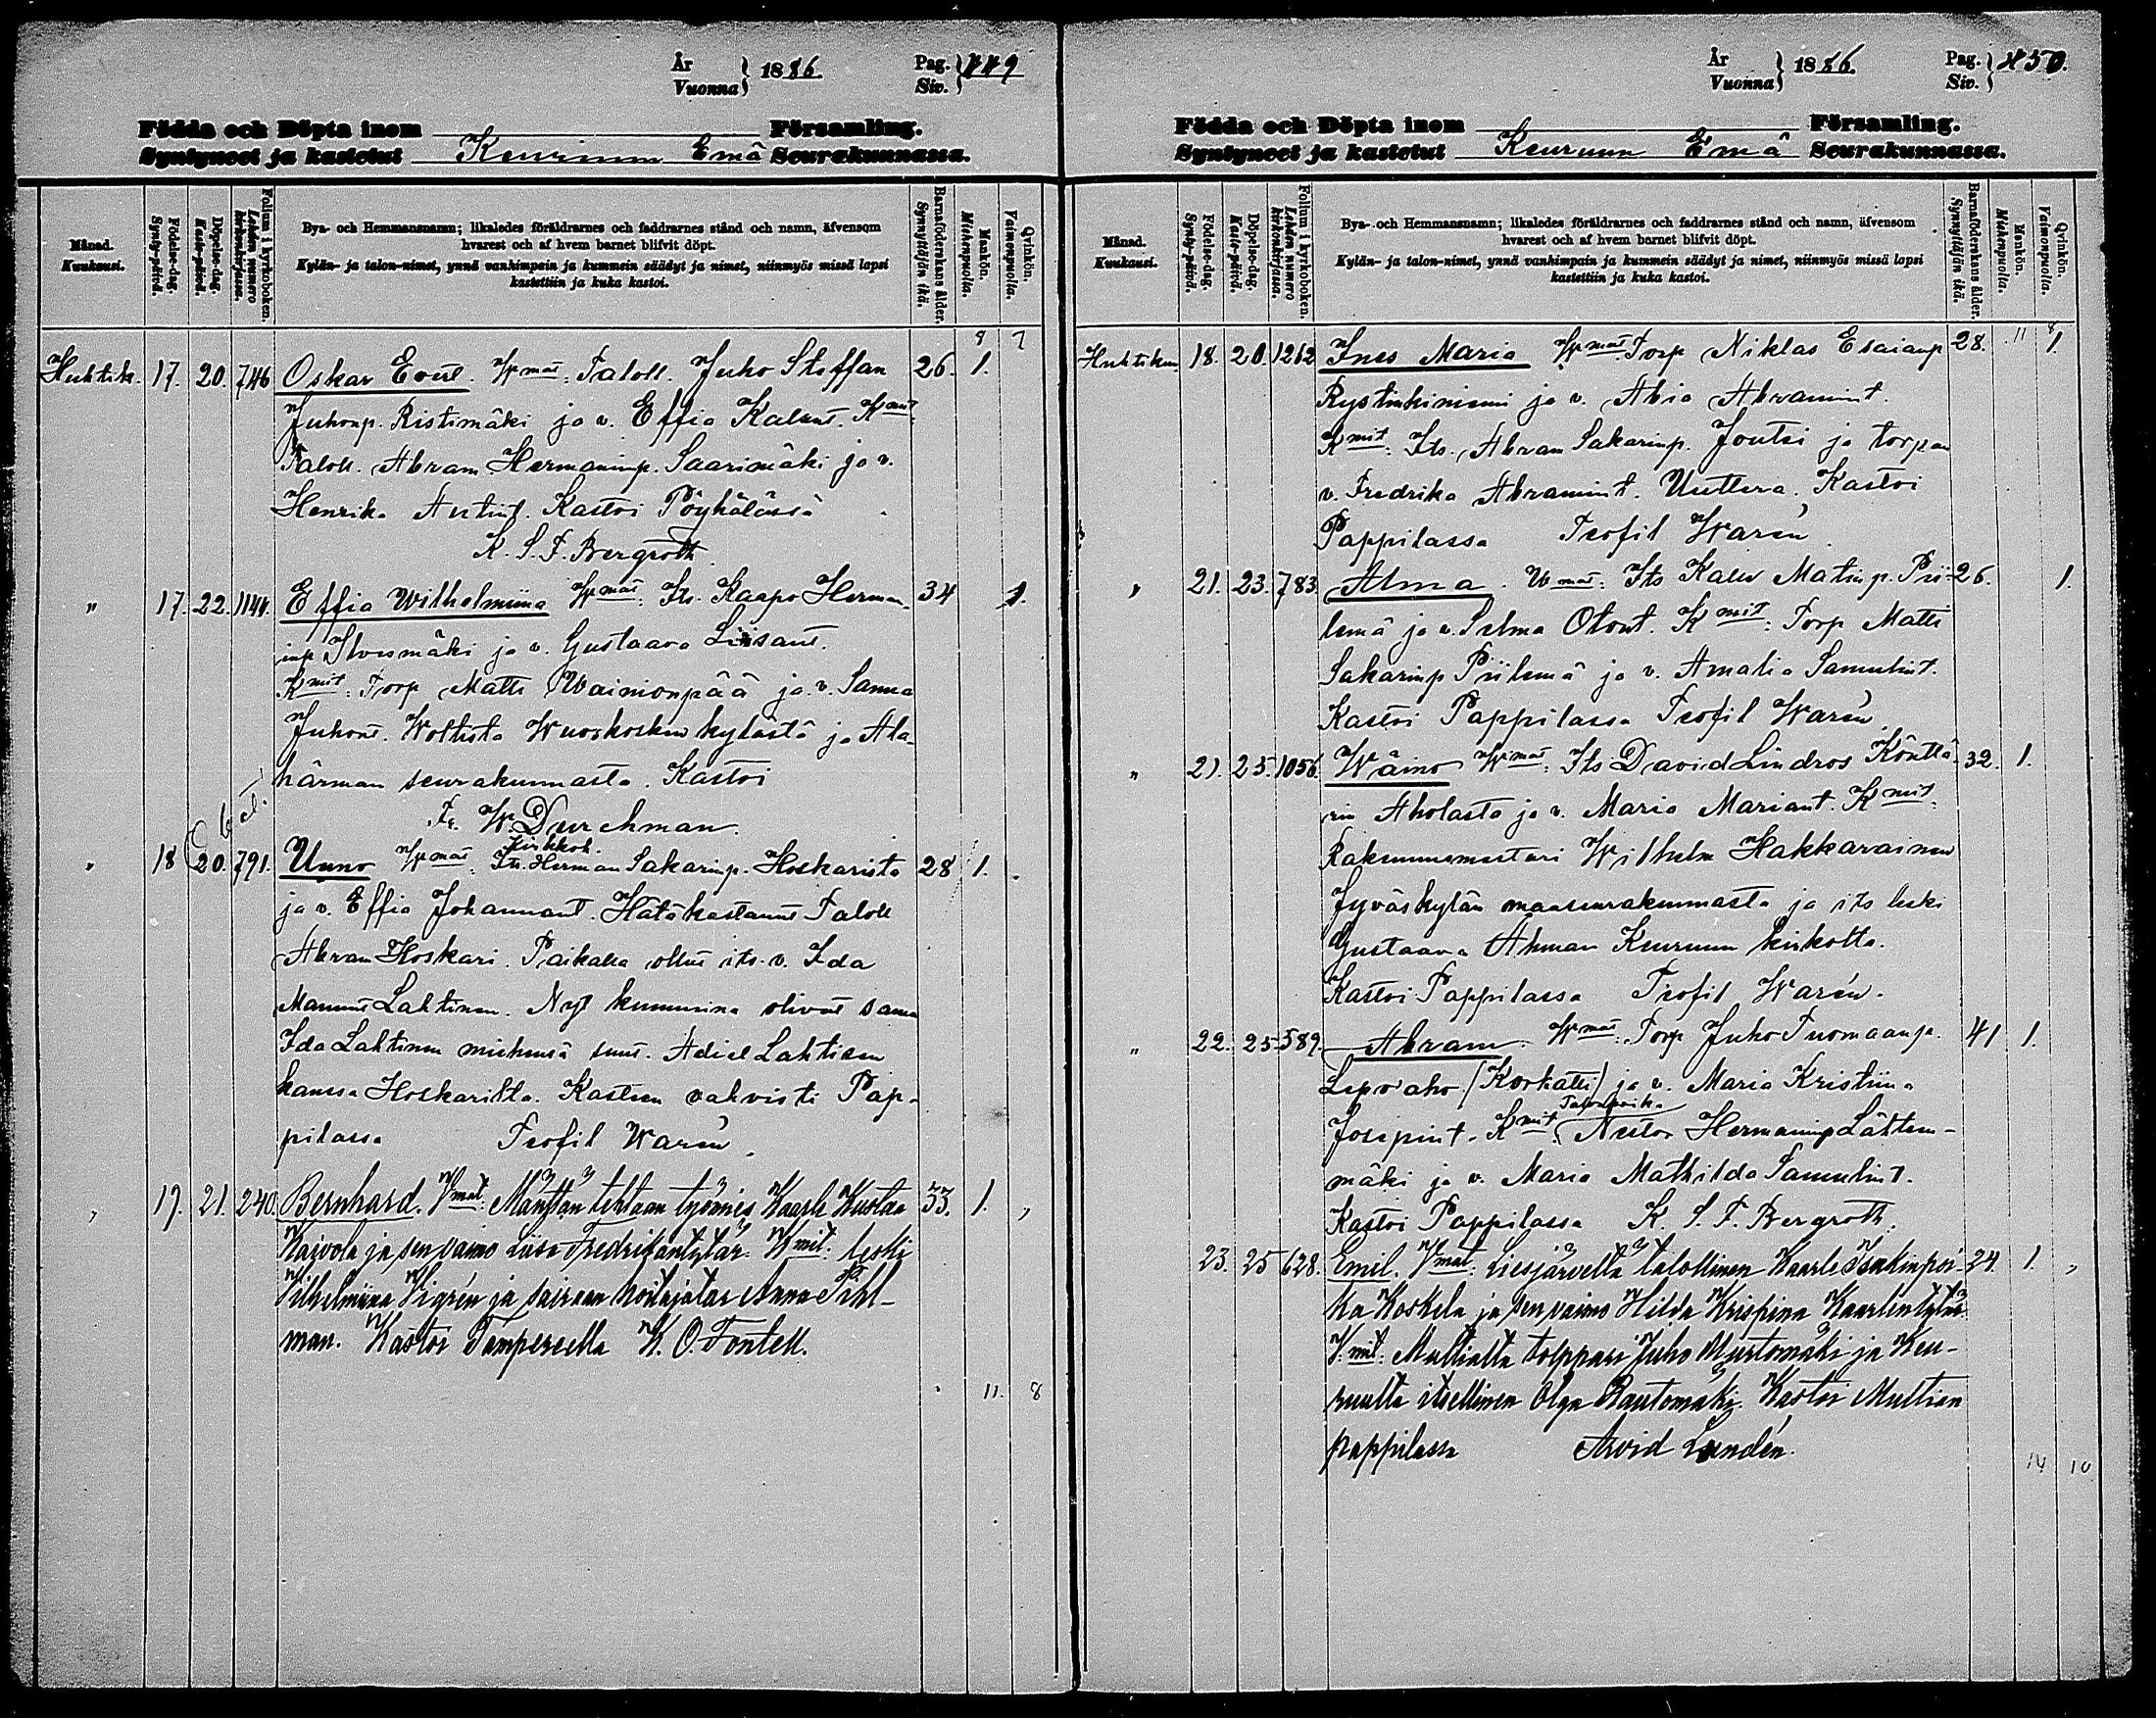 År
Vuonna } 1886. Pag.
Siv. } 449
Födda och Döpta inom Församling.
Syntyneet ja kastetut Keuruun Emä Seurakunnassa.
Månad.
Kuukausi.
Födelse-dag.
Synty-päivä.
Döpelse-dag.
Kaste-päivä.
Folium i kyrkoboken.
Lehden numero kirkonkirjassa.
Bya- och Hemmansnamn; likaledes föräldrarnes och faddrarnes stånd och namn, äfvensom
hvarest och af hvem barnet blifvit döpt.
Kylän- ja talon-nimet, ynnä vanhimpain ja kummein säädyt ja nimet, niinmyös missä lapsi
kastettiin ja kuka kastoi.
Barnaföderskans ålder.
Synnyttäjän ikä.
Mankön.
Miehenpuolia.
Qvinkön.
Vaimonpuolia.
9 7
Huhtik. 17. 20. 746 Oskar Evert. Wmat: Taloll. Juho Steffan 26. 1.
Juhonp. Ristimäki ja v. Effia Kalent. Kmit
Taloll. Abram Hermaninp. Saarimäki ja v.
Henrika Antint. Kastoi Pöyhölässä
K. S. F. Bergroth.
" 17. 22. 1144. Effia Wilhelmiina Wmat: Its. Kaapo Herman- 34 1.
inp. ja v. Gustaava Liisant.
Kmit: Torp Matti Wainionpää ja v. Sanna
Juhont. Woltista Wuoskosken kylästä ja Ala-
härmän seurakunnasta. Kastoi
Fr. W. Durchman.
" 18 20. 791. Uuno Wmat: Its. Herman Sakarinp. Hoskarista 28 1.
Kirkkoh.
ja v. Effia Johannant. Hätäkastanut Taloll
Abram Hoskari. Paikalla ollut its. v. Ida
Lahtinen. Nyt kummina olivat sama
Ida Lahtinen miehensä suut. Adiel Lahtisen
kanssa Hoskarilta. Kasteen vahvisti Pap-
pilassa Teofil Warén.
" 19. 21. 240. Bernhard. Vmat: Mänttän tehtaan työmies Kaarle Kustaa 33. 1.
Kaivola ja sen vaimo Liisa Fredrikantytär. Kmit: leski
Vilhelmiina Vigrén ja sairaan hoitajatar Anna Pihl-
man. Kastoi Tampereella K. O. Fontell.
11. 8
År
Vuonna } 1886. Pag.
Siv. } 450.
Födda och Döpta inom Församling.
Syntyneet ja kastetut Keuruun Emä Seurakunnassa.
Månad.
Kuukausi.
Födelse-dag.
Synty-päivä.
Döpelse-dag.
Kaste-päivä.
Folium i kyrkoboken.
Lehden numero kirkonkirjassa.
Bya- och Hemmansnamn; likaledes föräldrarnes och faddrarnes stånd och namn, äfvensom
hvarest och af hvem barnet blifvit döpt.
Kylän- ja talon-nimet, ynnä vanhimpain ja kummein säädyt ja nimet, niinmyös missä lapsi
kastettiin ja kuka kastoi.
Barnaföderskans ålder.
Synnyttäjän ikä.
Mankön.
Miehenpuolia.
Qvinkön.
Vaimonpuolia.
11 8
Huhtikuu 18. 20. 1262 Ines Maria Wmat: Torp Niklas Esaianp 28. 1.
ja v. Abramint.
Kmit: Its. Abram Sakarinp. Joutsi ja torpan
v. Fredrika Abramint. Uuttera. Kastoi
Pappilassa Teofil Warén.
" 21. 23. 783. Alma. Wmat: Its Kalle Matinp. Pii- 26. 1.
lemä ja v. Selma Otont. Kmit: Torp Matti
Sakarinp Piilemä ja v. Amalia Samulint.
Kastoi Pappilassa Teofil Warén.
" 21. 25. 1056. Wäinö Wmat: Its David Lindros Könttä- 32. 1.
rin Aholasta ja v. Maria Mariant. Kmit:
Rakennusmestari Wilhelm Hakkarainen
Jyväskylän maaseurakunnasta ja its leski
Gustaava Åhman Keuruun kirkolta.
Kastoi Pappilassa Teofil Warén.
" 22. 25 589. Abram. Wmat: Torp Juho Tuomaanp. 41 1.
Lepoaho (Korkatti) ja v. Maria Kristiina
Josepint. Kmit: Nestor Hermaninp Lähteen-
mäki ja v. Maria Mathilda Samulint.
Kastoi Pappilassa K. S. F. Bergroth.
23. 25 628. Emil. Vmat: Liesjärveltä talollinen Kaarle Iisakinpoi- 24. 1.
ka Koskela ja sen vaimo Hilda Krispina Kaarlentytär.
Kmit: Multialta torppari Juho Mustomäki ja Keu-
ruulta itsellinen Olga Rautomäki. Kastoi Multian
pappilassa Arvid Lundén.
14 10